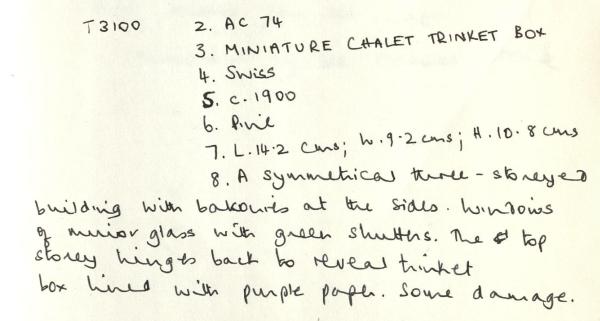 T3100 2. AC 74
3. MINIATURE CHALET TRINKET BOX
4. Swiss
5. c.1900
6. Pine
7. L.14.2 cms; W.9.2 cms; H.10.8 cms
8. A symmetrical three-storeyed
building with balconies at the sides. Windows
of mirror glass with green shutters. The top
storey hinges back to reveal trinket
box lined with purple paper. Some damage.